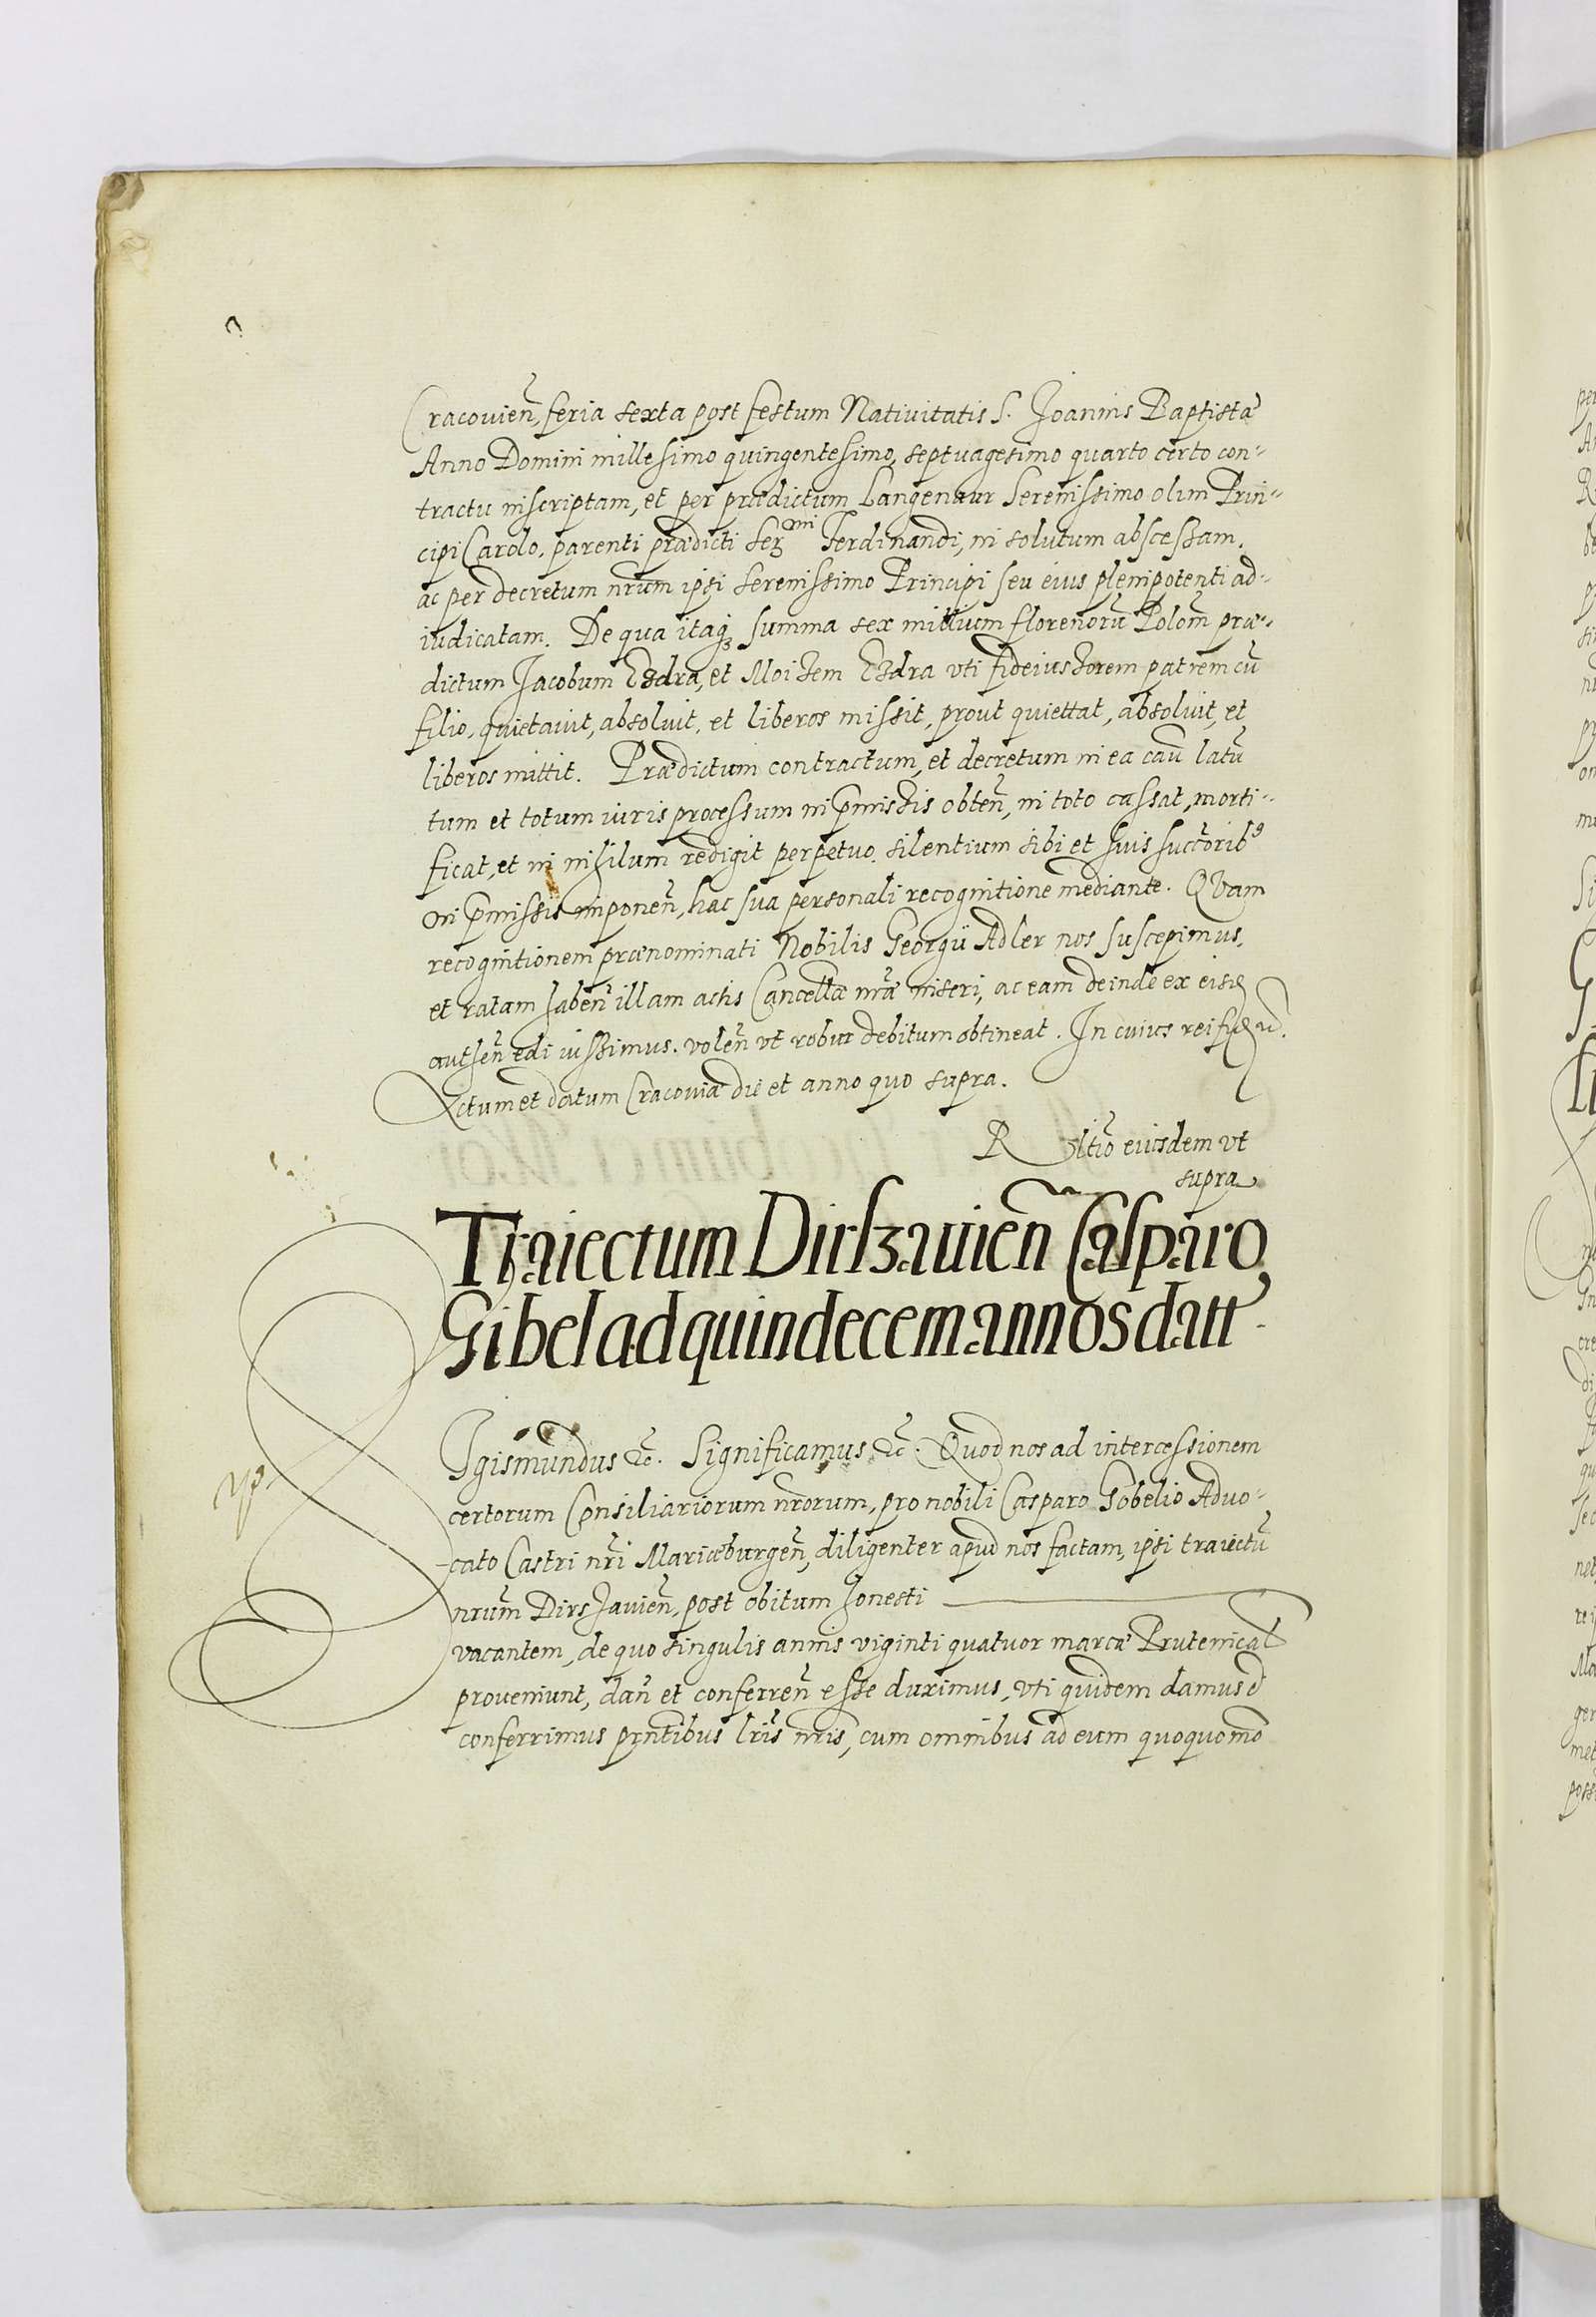 Cracouien̄, feria sexta post festum Natiuitatis S. Joannis Baptistæ
Anno Domini millesimo quingentesimo, septuagesimo quarto certo con-
tractu inscriptam, et per prædictum Langenaur Serenissimo olim Prin-
cipi Carolo, parenti prædicti Ser^mi Ferdinandi, in solutum abscessam,
ac per decretum nrūm ipsi Serenissimo Principi seu eius plenipotenti ad-
iudicatam. De qua itaqꝫ summa sex millium florenorū Polon̄ præ-
dictum Jacobum Ezdra, et Moisem Ezdra vti fideiussorem patrem cū
filio, quietauit, absoluit, et liberos missit, prout quiettat, absoluit, et
liberos mittit. Prædictum contractum, et decretum in ea caū latū
tum et totum iuris processum in p̄missis obten̄, in toto cassat, morti-
ficat, et in nihilum redigit perpetuo silentium sibi et suis succ̄toribꝰ
in p̄missis imponen̄, hac sua personali recognitione mediante. Quam
recognitionem prænominati Nobilis Georgii Adler nos suscepimus,
et ratam haben̄ illam actis Cancellæ nr̄æ inseri, ac eam deinde ex eisd
authen̄ edi iussimus. volen̄ vt robur debitum obtineat. In cuius rei fid &c.
Actum et datum Cracouiæ die et anno quo supra.
Rltīo eiusdem vt
supra
Traiectum Dirszauien̄ Casparo
Gibel ad quindecem annos datt
Sigismundus &c. Significamus &c. Quod nos ad intercessionem
certorum Consiliariorum nrōrum, pro nobili Casparo Gobelio Aduo-
cato Castri nrī Mariæburgen̄, diligenter apud nos factam, ipsi traiectū
nrūm Dirshauien̄, post obitum honesti
vacantem, de quo singulis annis viginti quatuor marcæ Prutenical
proueniunt, dan̄ et conferren̄ esse duximus, vti quidem damus et
conferrimus prn̄tibus lrīs nrīs, cum omnibus ad eum quoquomo